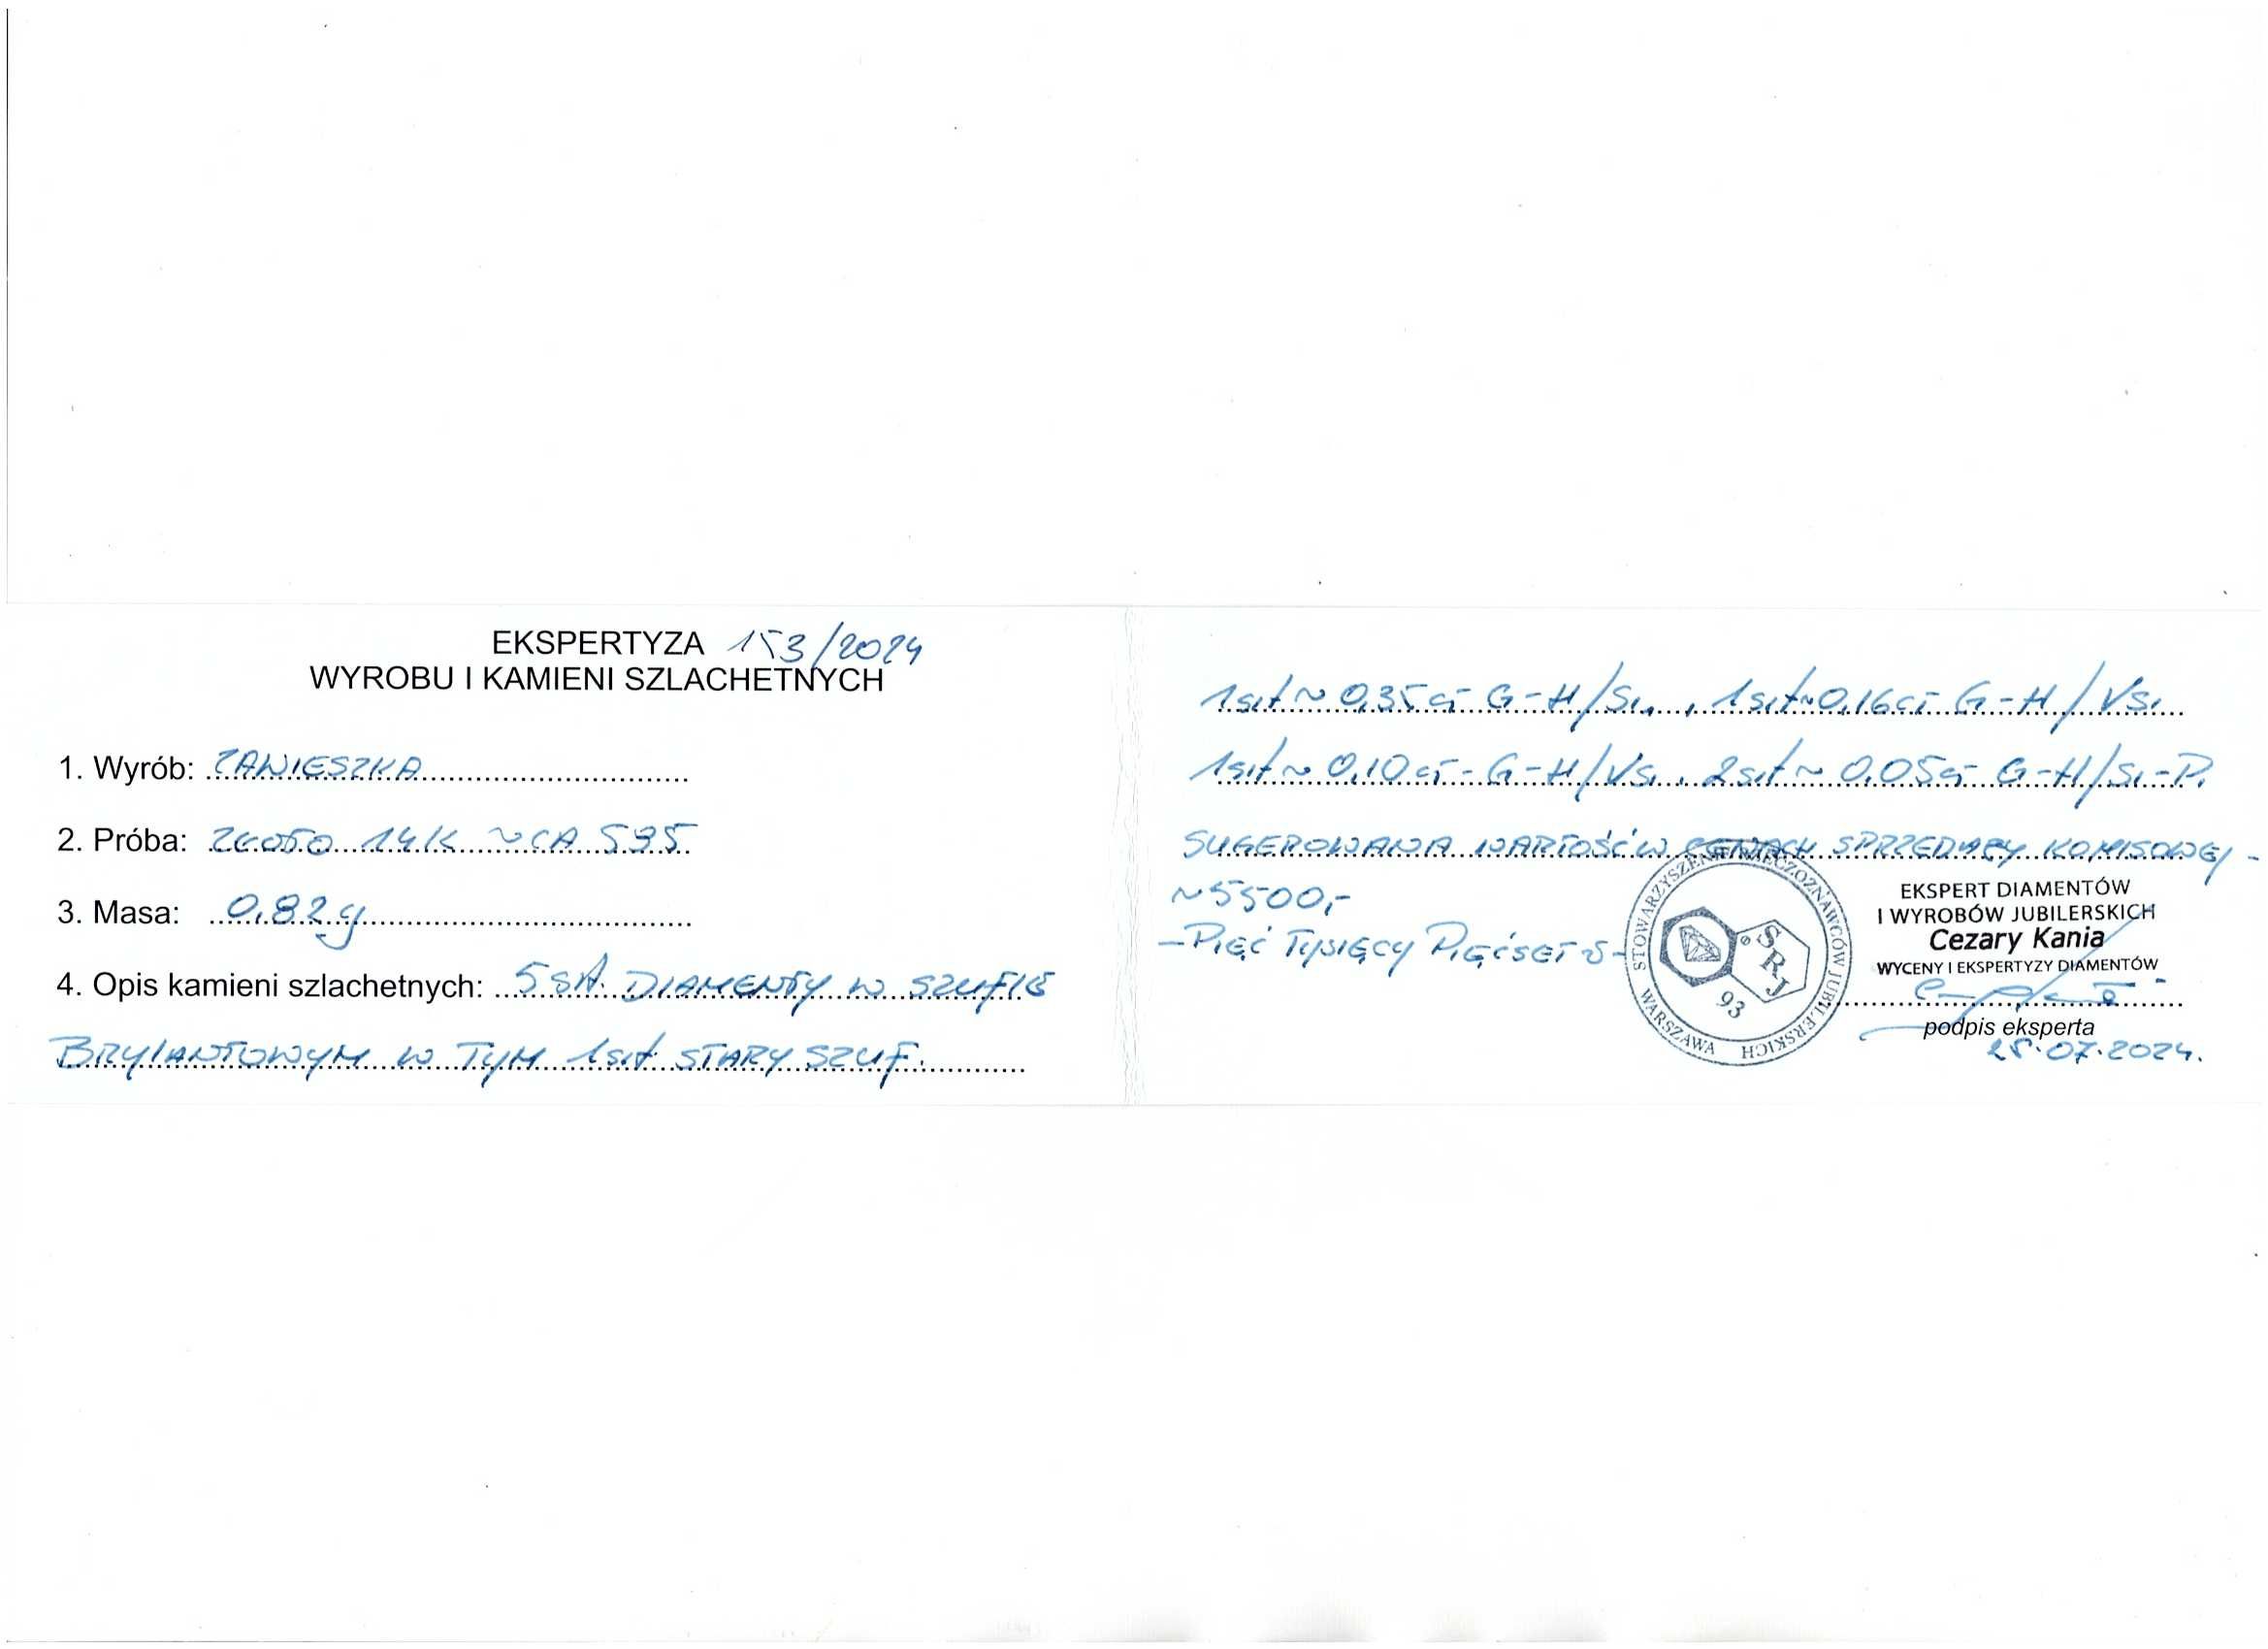 EKSPERTYZA 153/2024
WYROBU I KAMIENI SZLACHETNYCH
1. Wyrób: ZAWIESZKA
2. Próba: ZŁOTO 14K ~CA 595
3. Masa: 0,82g
4. Opis kamieni szlachetnych: 5 szt. DIAMENTY W SZLIFIE
BRYLANTOWYM W TYM 1szt STARY SZLIF.
1szt ~ 0,35ct - G-H/Si1, 1szt ~ 0,16ct G-H/VS1
1szt ~ 0,10ct - G-H/VS1, 2szt ~ 0,05ct G-H/Si-P1
SUGEROWANA WARTOŚĆ W CENACH SPRZEDAŻY KOMISOWEJ -
~5500,-
-PIĘĆ TYSIĘCY PIĘĆSET ZŁ-
STOWARZYSZENIE RZECZOZNAWCÓW JUBILERSKICH
WARSZAWA
SRJ
93
EKSPERT DIAMENTÓW
I WYROBÓW JUBILERSKICH
Cezary Kania
WYCENY I EKSPERTYZY DIAMENTÓW
podpis eksperta
25.07.2024.